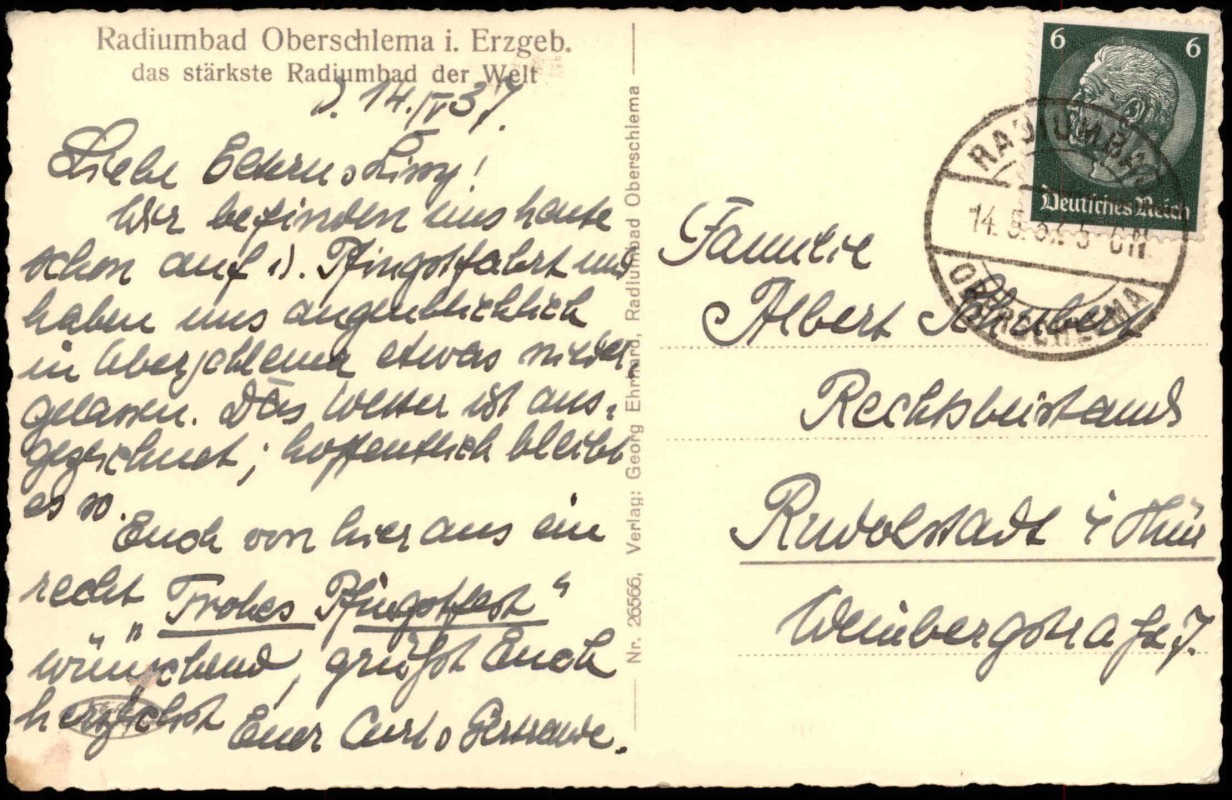 Radiumbad Oberschlema i. Erzgeb.
das stärkste Radiumbad der Welt
D. 14. IV 37.
Liebe Eltern u. Lissy!
Wir befinden uns heute
schon auf d. Pfingstfahrt und
haben uns augenblicklich
in Oberschlema etwas nieder,
gelassen. Das Wetter ist aus,
gezeichnet; hoffentlich bleibt
es so.
Euch von hier aus ein
recht „Frohes Pfingstfest“
wünschend, grüßt Euch
herzlichst Euer Curt u. Gertraude.
Nr. 26566, Verlag: Georg Ehrhard, Radiumbad Oberschlema
6 6
Deutsches Reich
RADIUMBAD
14.5.37. 5-6N
OBERSCHLEMA
Familie
Albert Schubert
Rechtsbeistand
Rudolstadt i Thür
Weinbergstraße 7.